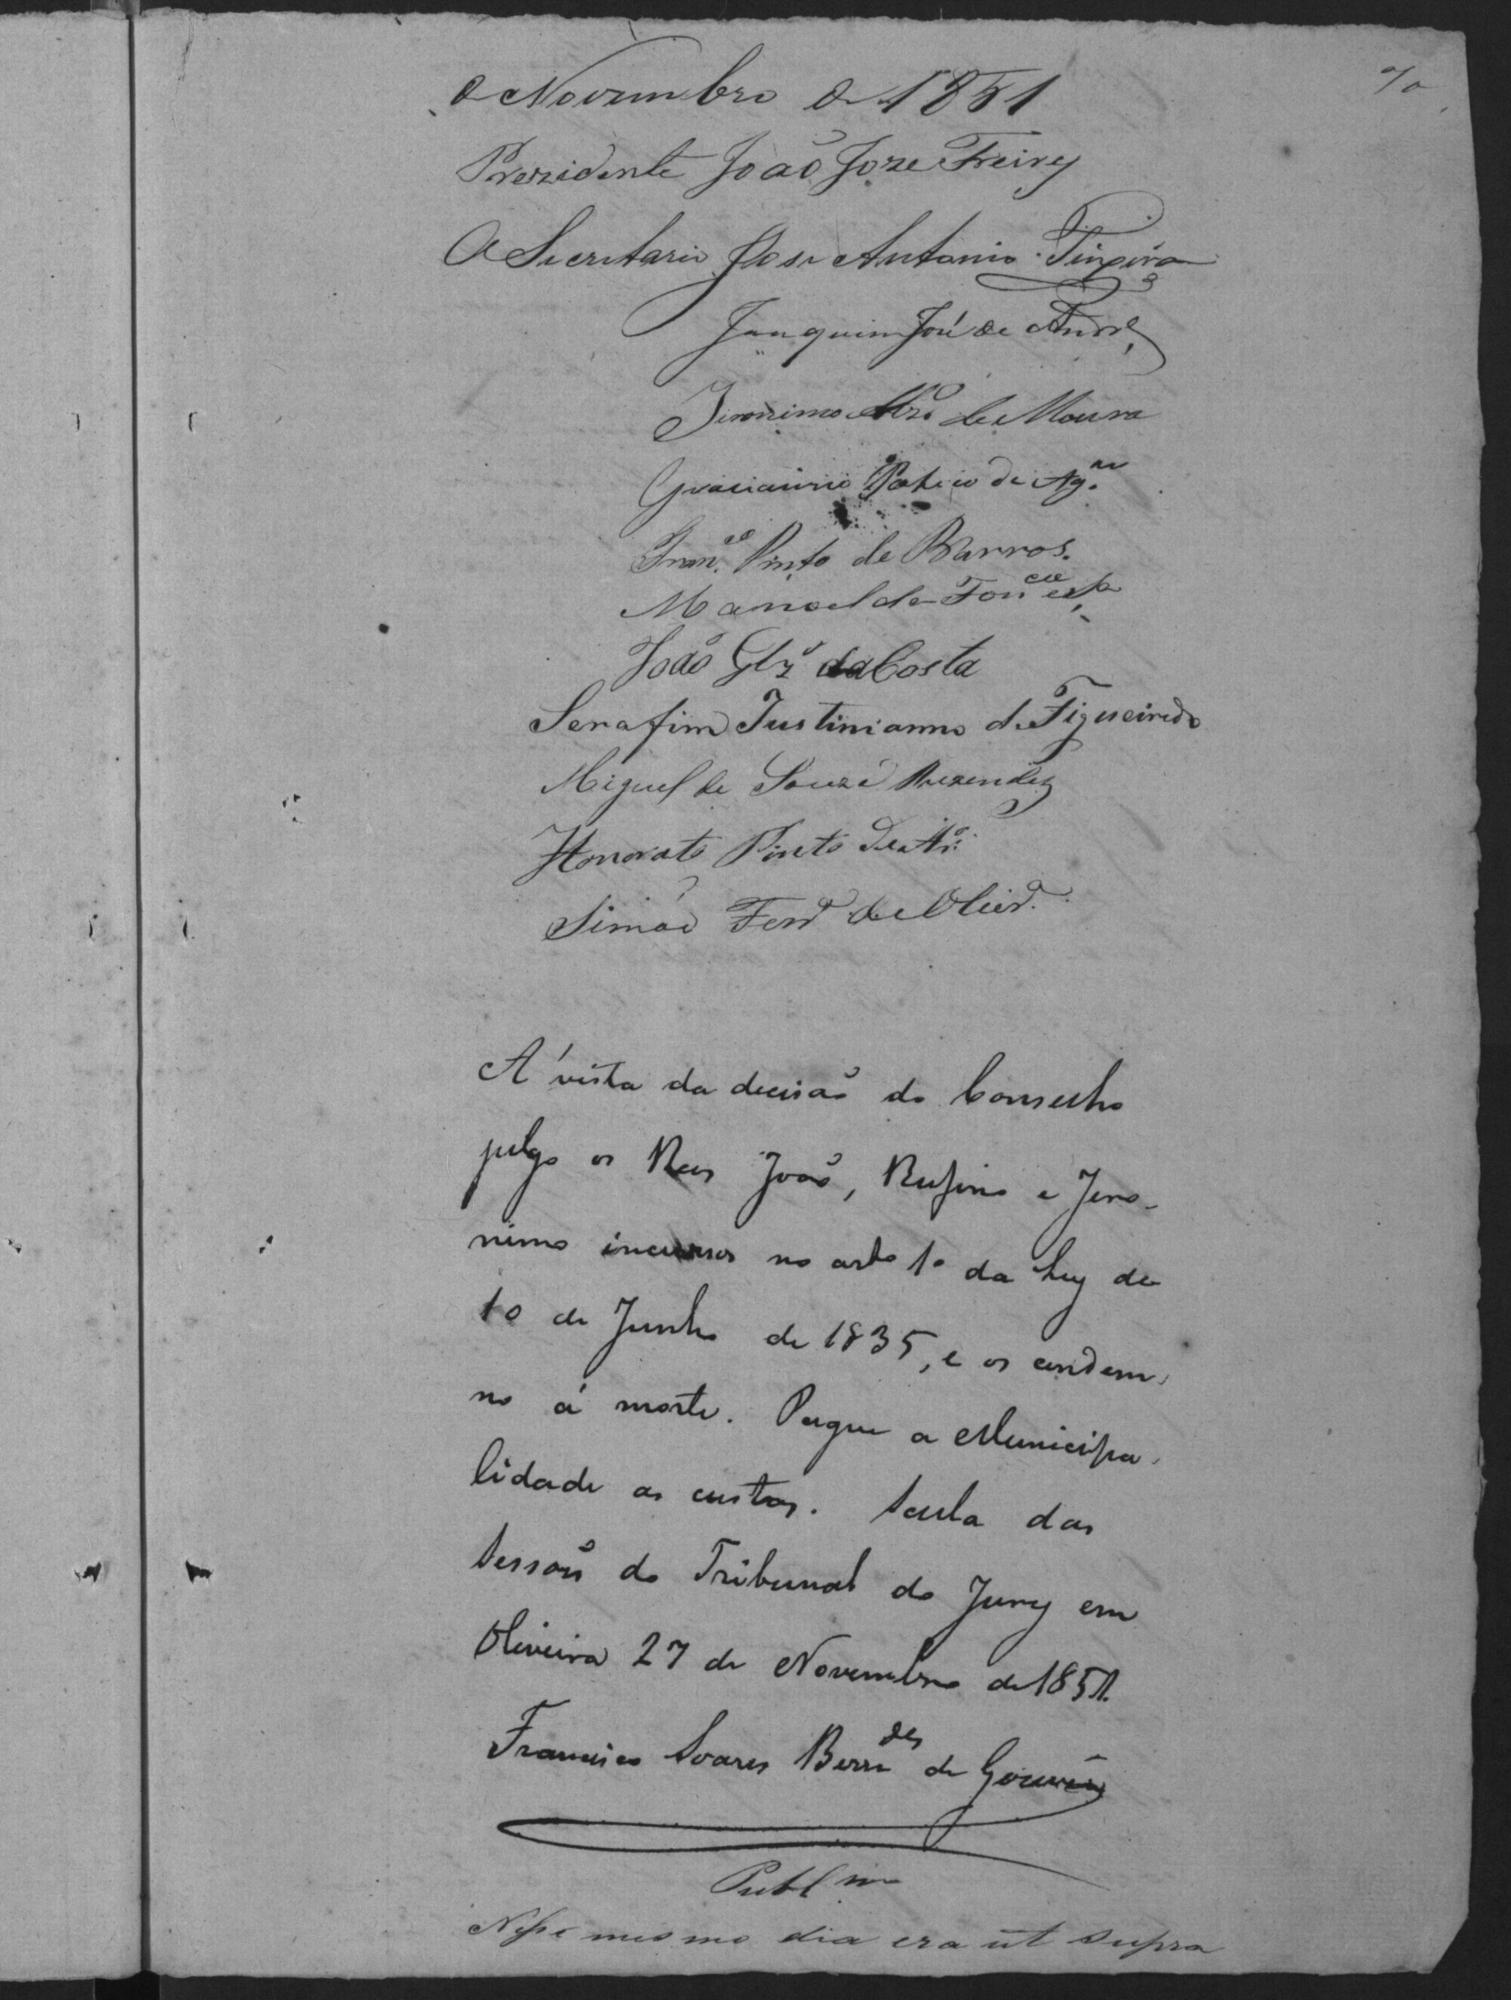 de Novembro de 1851
Prezidente João Joze Freire
O Secretario Jose Antonio Teixeira
Joaquim José de
Jeronimo de Moura
Graciano Pacheco de
Fran.co Pinto de Barros.
Manoel da
João Glz' da Costa
Serafim Justinianno de Figueiredo
Miguel de Souza Rezende
Honorato Pinto de
Simão Ferr.a de Oliv.ra
Á vista da decisão do Conselho
julgo os Reos João, Rufino e Jero-
nimo incursos no art.o 1.o da Ley de
10 de Junho de 1835, e os condem-
no á morte. Pague a Municipa-
lidade as custas. Sala das
Sessoẽs do Tribunal do Jury em
Oliveira 27 de Novembro de 1851.
Francisco Soares Bern.des de Gouvêa
Publ.m
Nesse mesmo dia era ut supra